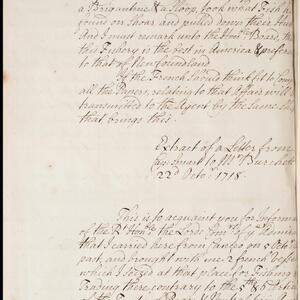 a Brigantine & a Sloop, took what Fish he
found on Shoar and pulled down their
And I must remark unto the Honble. Board, that
this Fishery is the best in America & preferable
to that of Newfoundland
If the French should think fit to
all the Papers, relating to that Affair will be
transmitted to the Agent by the same
that brings this.
Extract of a Letter from
Cap. Smart to Mr. Burchett
22d Octor. 1718.
This is to acquaint you for Informa
of the Rt. Honble. the Lords Comrs. of ye. Admira
that I carried here from Canso on 5 Octor.
past, and brought with me 2 french Vessels
which I seized at that place for Fishing &
Trading there, contrary to the 5th & 6th Articles
of the